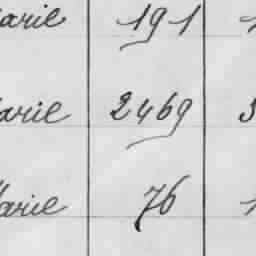 arie 191
arie 2469
Marie 76